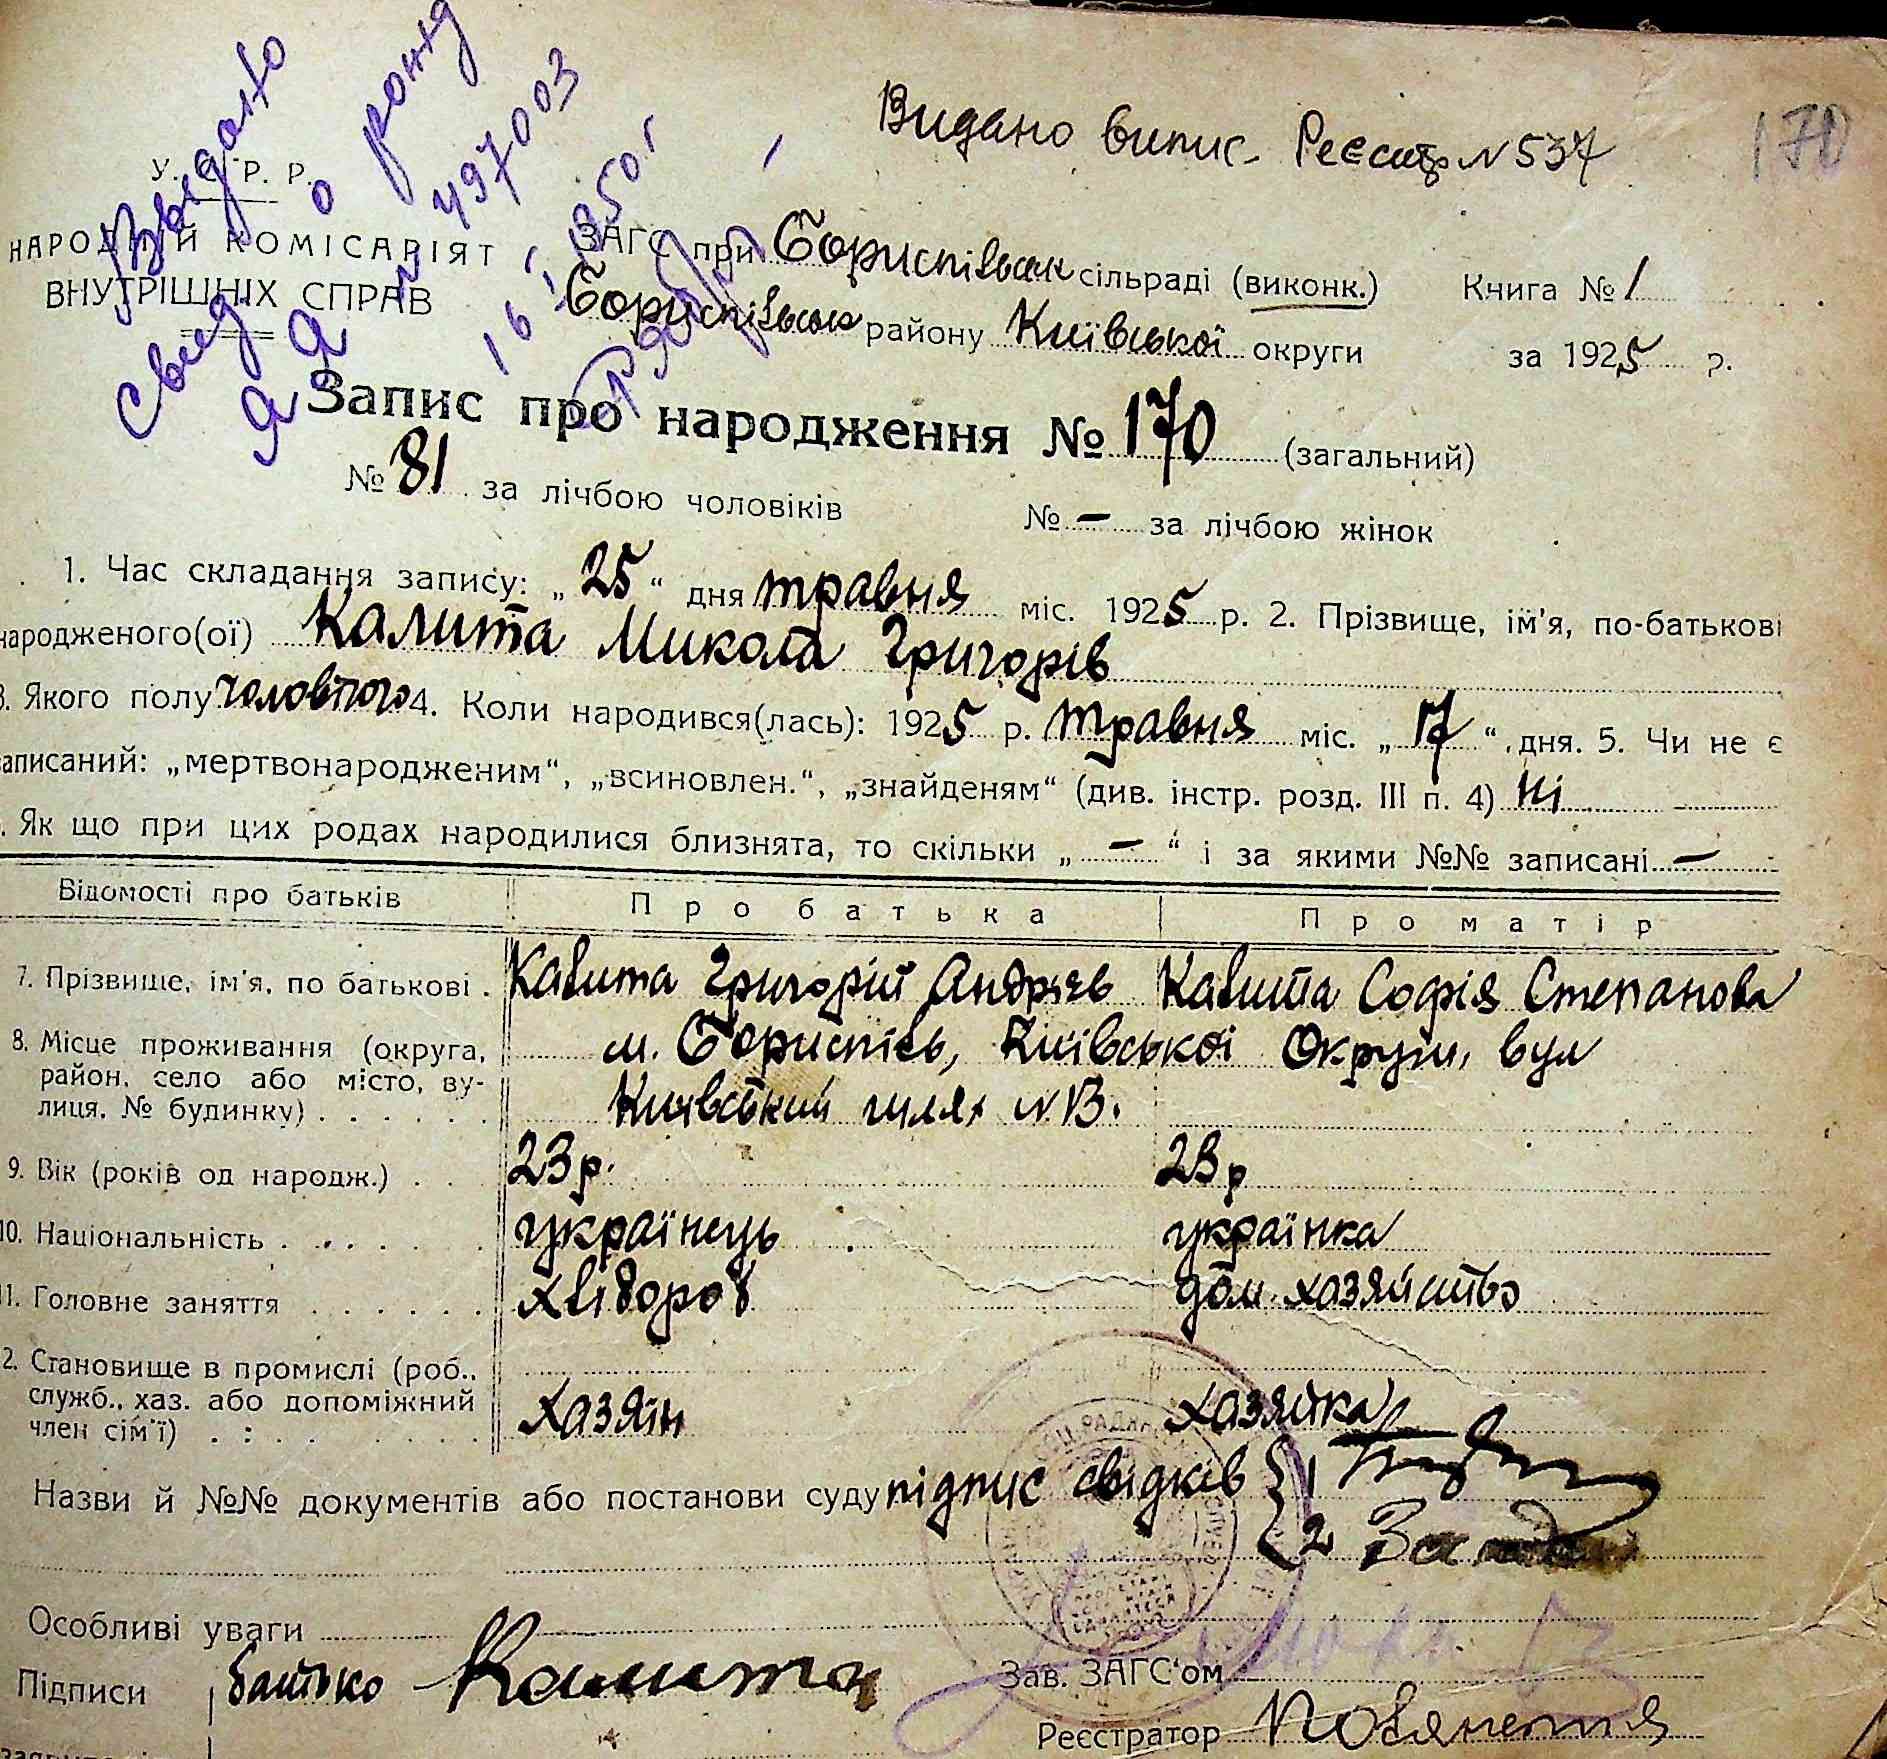 Видано випис. Реєстр № 537
170
Выдано
свид о рожд
ЯЯ № 497003
16 1950 г
У. С. Р. Р.
НАРОДНІЙ КОМІСАРІЯТ
ВНУТРІШНІХ СПРАВ
ЗАГС при Бориспільськ сільраді (виконк.) Книга № 1
Бориспільськ району Київської округи за 1925 р.
Запис про народження № 170 (загальний)
№ 81 за лічбою чоловіків № — за лічбою жінок
1. Час складання запису: „25“ дня травня міс. 1925 р. 2. Прізвище, ім'я, по-батькові
народженого(ої) Калита Микола Григорів
3. Якого полу чоловічого 4. Коли народився(лась): 1925 р. травня міс. „17“ дня. 5. Чи не є
записаний: „мертвонародженим“, „всиновлен.“, „знайденям“ (див. інстр. розд. III п. 4) ні
. Як що при цих родах народилися близнята, то скільки „ — “ і за якими №№ записані —
Відомості про батьків Про батька Про матір
7. Прізвище, ім'я, по батькові . Калита Григорій Андрієв Калита Софія Степанова
8. Місце проживання (округа, м. Бориспіль, Київської Округи, вул
район, село або місто, ву-
лиця, № будинку) . . . . . . Київський шлях № 13.
9. Вік (років од народж.) . . 23 р. 23 р
10. Національність . . . . . . українець українка
11. Головне заняття . . . . . . хлібороб дом. хазяйство
12. Становище в промислі (роб.,
служб., хаз. або допоміжний хазяїн хазяйка
член сім'ї) . : . .
Назви й №№ документів або постанови суду підпис свідків { 1
2
Особливі уваги
Підписи батько Калита Зав. ЗАГС'ом
Реєстратор